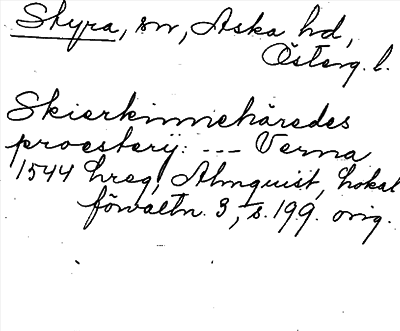 Skyra, sn, Aska hd,
Österg. l.
Skierkinnehäredes
proesterij: --- Verna
1544 hreg, Almquist, Lokal
förvaltn. 3, s. 199. orig.